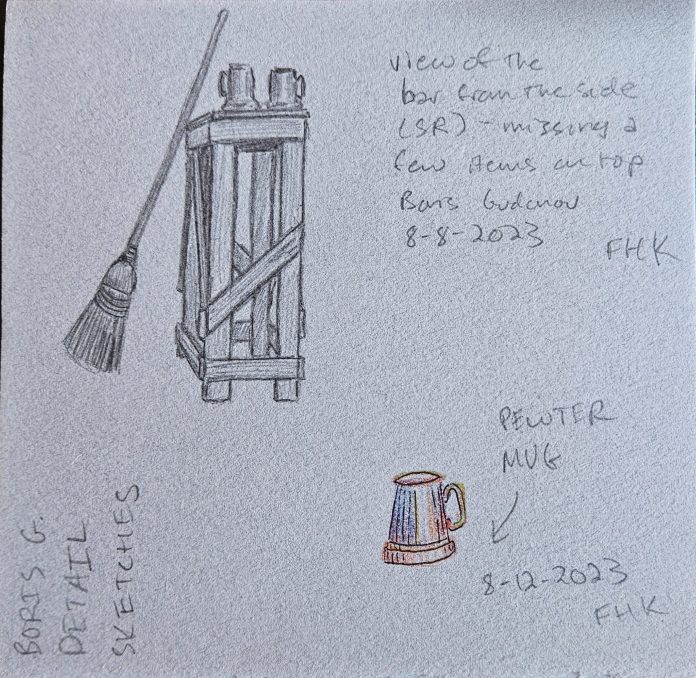 view of the
bar from the side
(SR) - missing a
few items on top
Boris Gudonov
8-8-2023
FHK
PEWTER
MUG
8-12-2023
FHK
BORIS G.
DETAIL
SKETCHES